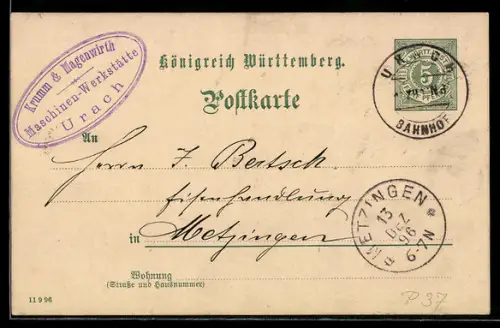 Krumm & Magenwirth
Maschinen-Werkstätte
Urach
Königreich Württemberg.
Postkarte
5
URACH
BAHNHOF
An
Herrn J. Bertsch
Eisenhandlung
in Metzingen
METZINGEN
13
DEZ
96
6-7N
Wohnung
(Straße und Hausnummer)
11 9 96
P 37